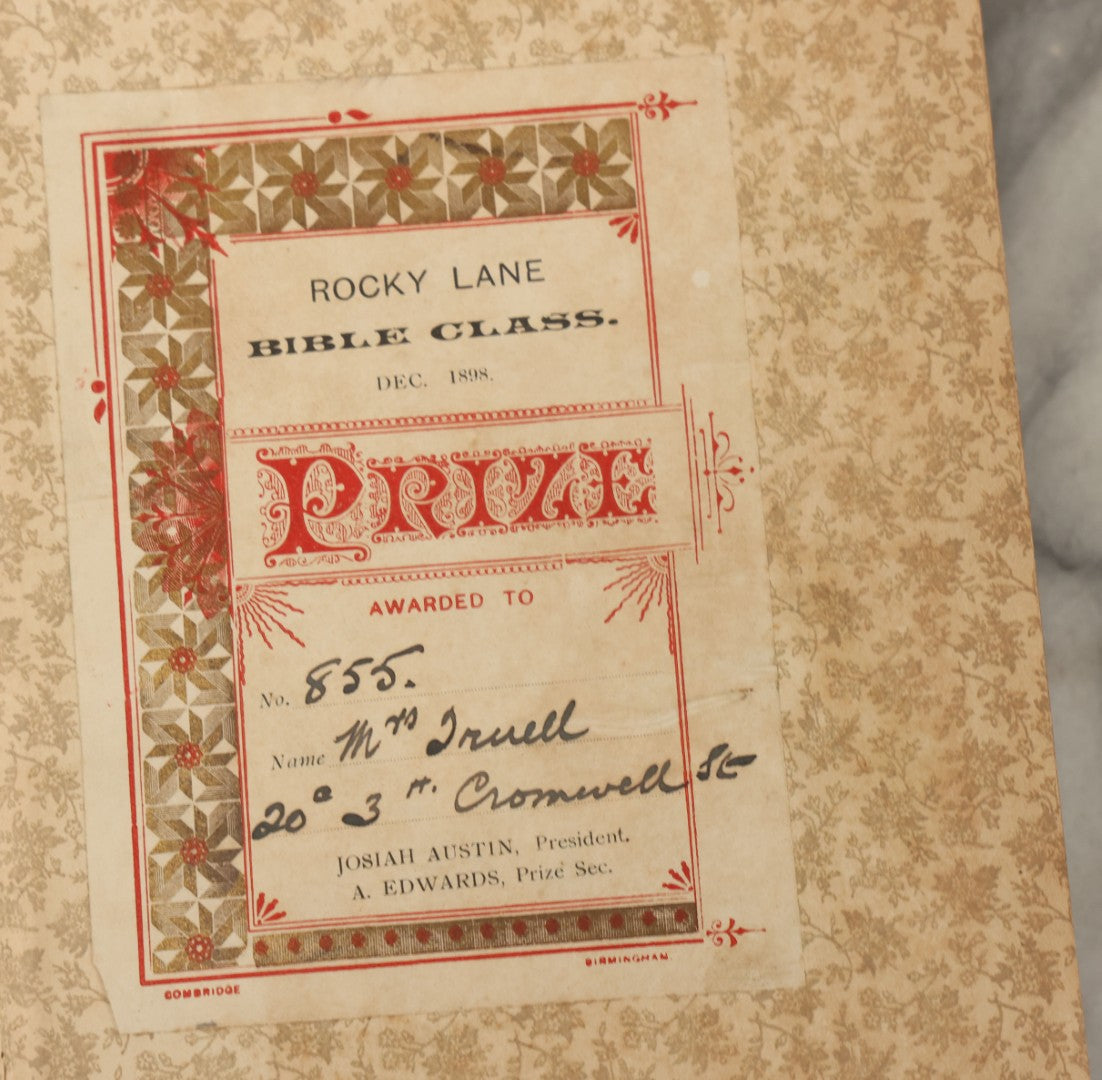 ROCKY LANE
BIBLE CLASS.
DEC. 1898.
PRIZE
AWARDED TO
No. 855.
Name Mrs Truell
20a 3 H. Cromwell St
JOSIAH AUSTIN, President.
A. EDWARDS, Prize Sec.
COMBRIDGE BIRMINGHAM.